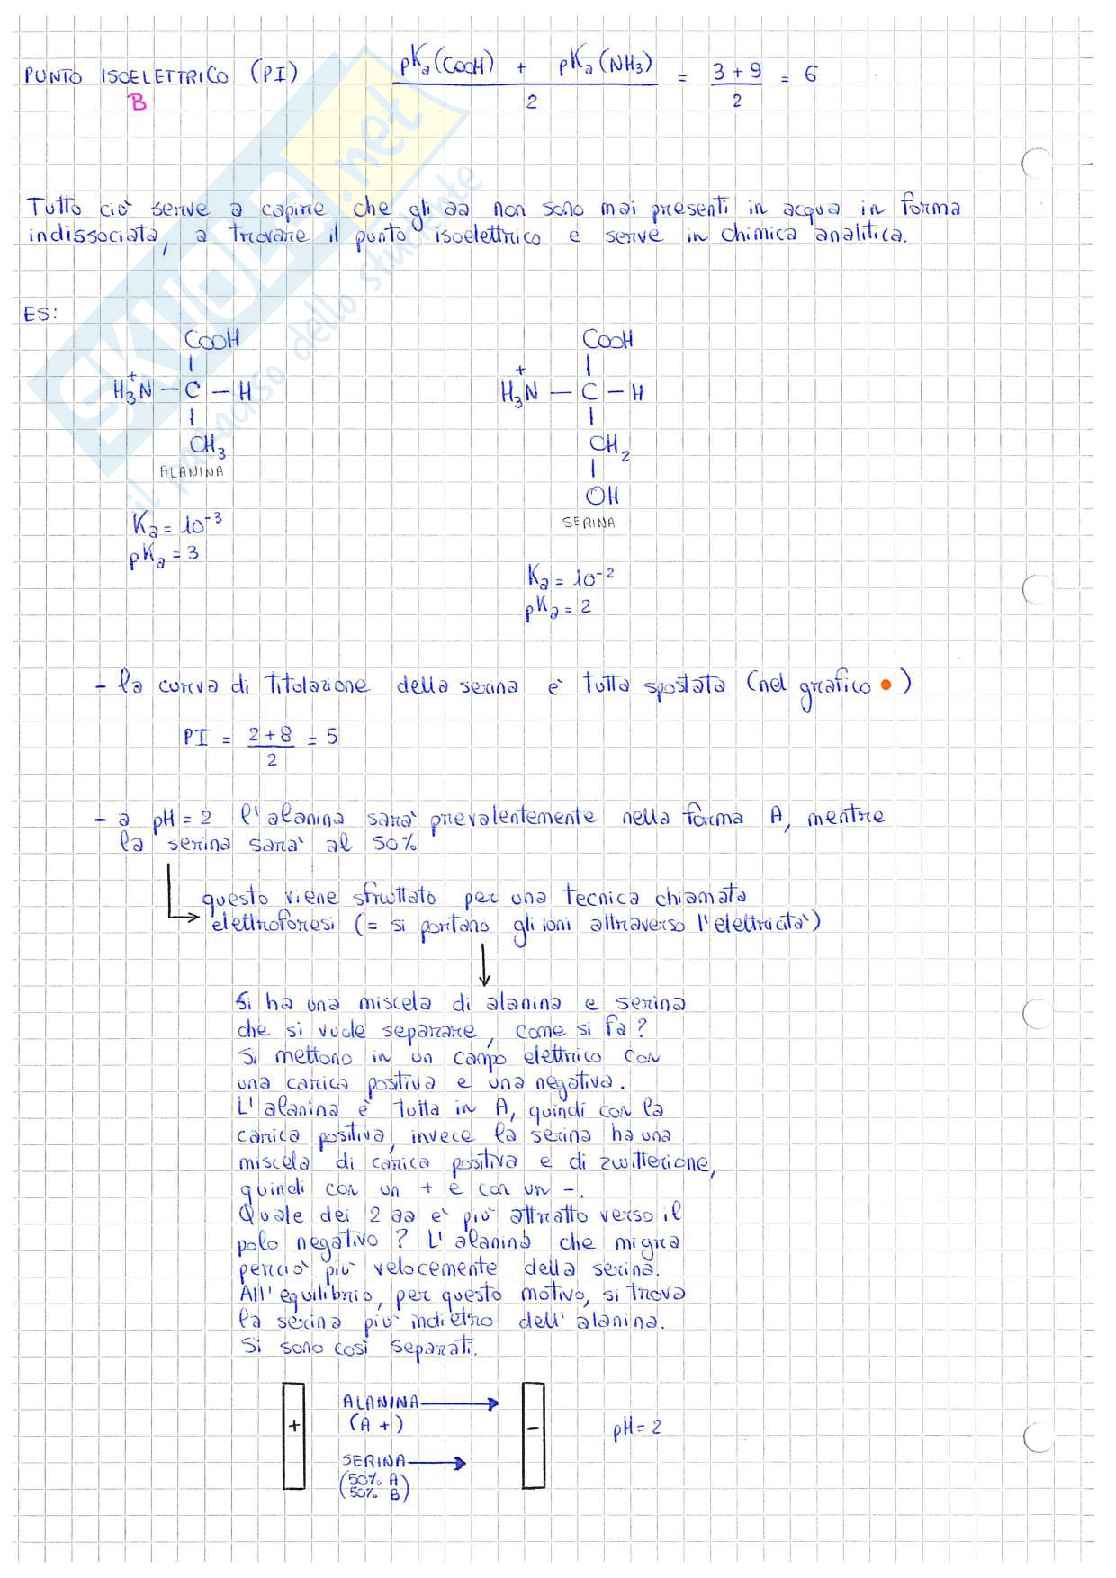 PUNTO ISOELETTRICO (PI) pKa(COOH) + pKa(NH3) / 2 = 3+9 / 2 = 6
B
Tutto ciò serve a capire che gli aa non sono mai presenti in acqua in forma
indissociata, a trovare il punto isoelettrico e serve in chimica analitica.
ES:
COOH
H3N+ — C — H
CH3
ALANINA
Ka = 10^-3
pKa = 3
COOH
H3N+ — C — H
CH2
OH
SERINA
Ka = 10^-2
pKa = 2
- la curva di titolazione della serina è tutta spostata (nel grafico •)
PI = 2+8 / 2 = 5
- a pH = 2 l'alanina sarà prevalentemente nella forma A, mentre
la serina sarà al 50%
questo viene sfruttato per una tecnica chiamata
elettroforesi (= si portano gli ioni attraverso l'elettricità)
Si ha una miscela di alanina e serina
che si vuole separare, come si fa?
Si mettono in un campo elettrico con
una carica positiva e una negativa.
L'alanina è tutta in A, quindi con la
carica positiva, invece la serina ha una
miscela di carica positiva e di zwitterione,
quindi con un + e con un -.
Quale dei 2 aa è più attratto verso il
polo negativo? L'alanina che migra
perciò più velocemente della serina.
All'equilibrio, per questo motivo, si trova
la serina più indietro dell'alanina.
Si sono così separati.
+ ALANINA → - pH = 2
(A +)
SERINA →
(50% A)
(50% B)
SKUOLA.net
il paradiso dello studente